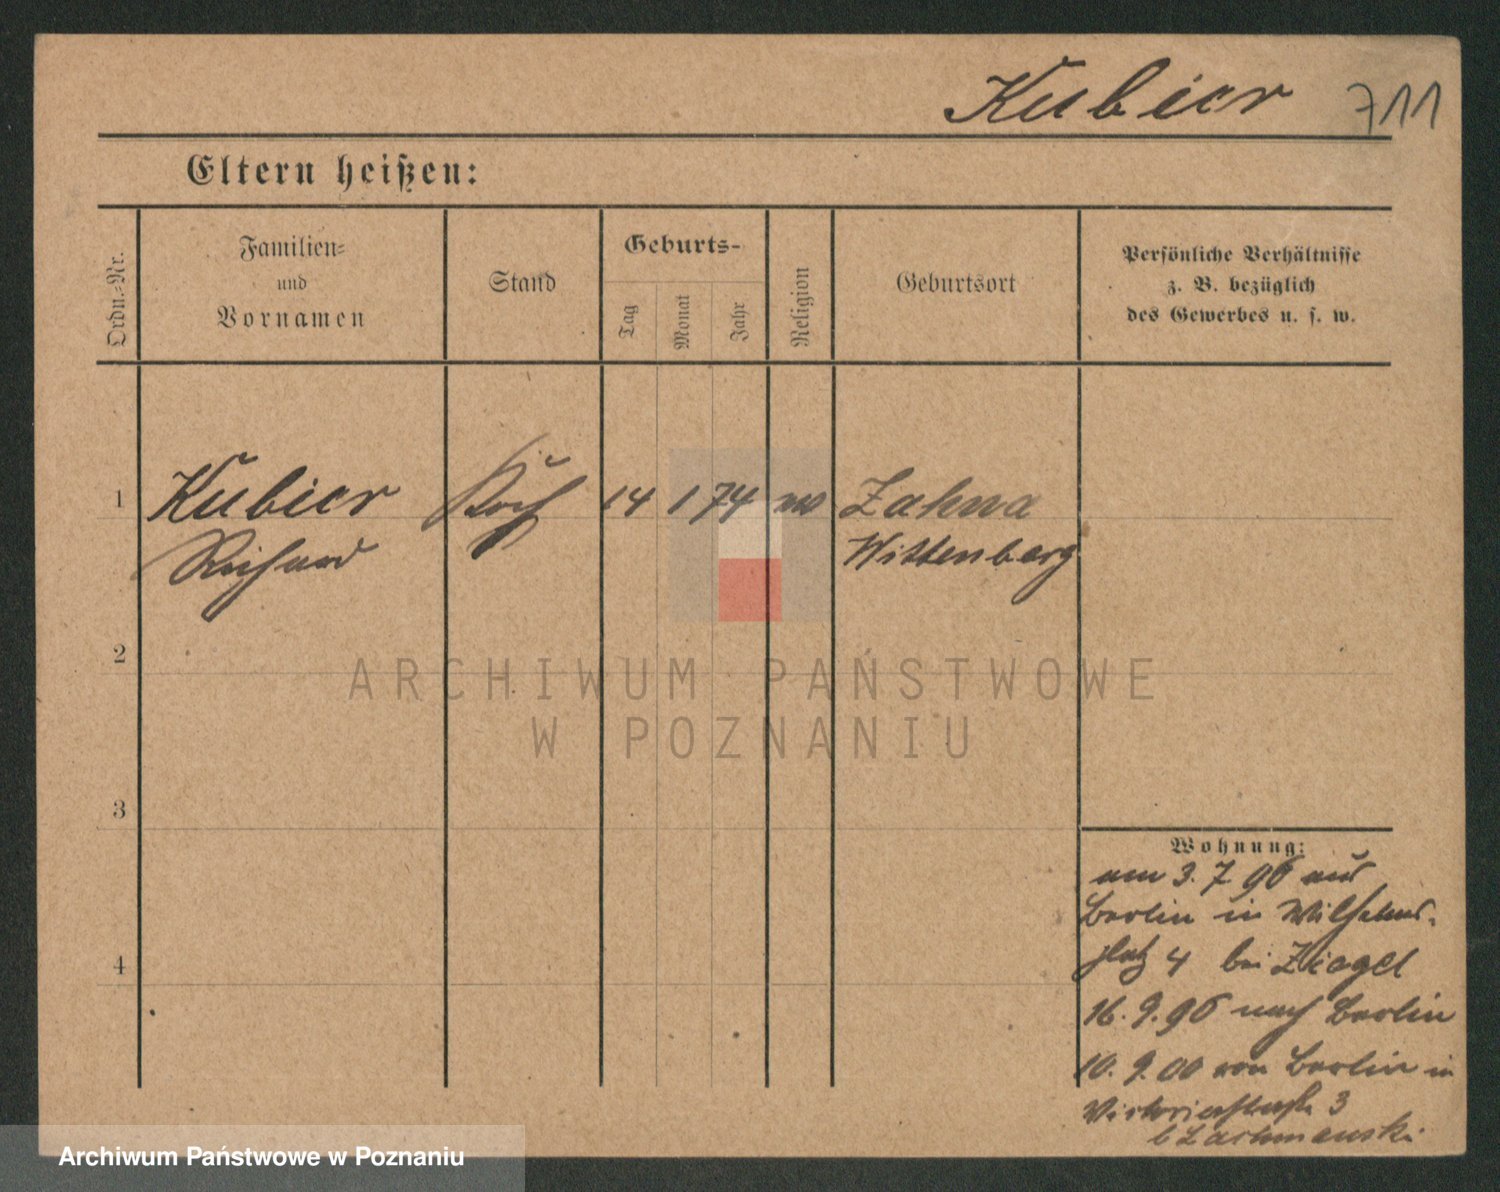 Kubier 711
Eltern heißen:
Ordn.-Nr.
Familien-
und
Vornamen
Stand
Geburts-
Tag
Monat
Jahr
Religion
Geburtsort
Persönliche Verhältnisse
z. B. bezüglich
des Gewerbes u. s. w.
1 Kubier Koch 14 1 74 Zahna
Richard Wittenberg
2
3
4
Wohnung:
am 3. 7. 96 aus
Berlin in Wilhelms-
platz 4 bei Ziegel
16. 9. 96 nach Berlin
10. 9. 00 von Berlin in
3
b
ARCHIWUM PAŃSTWOWE
W POZNANIU
Archiwum Państwowe w Poznaniu